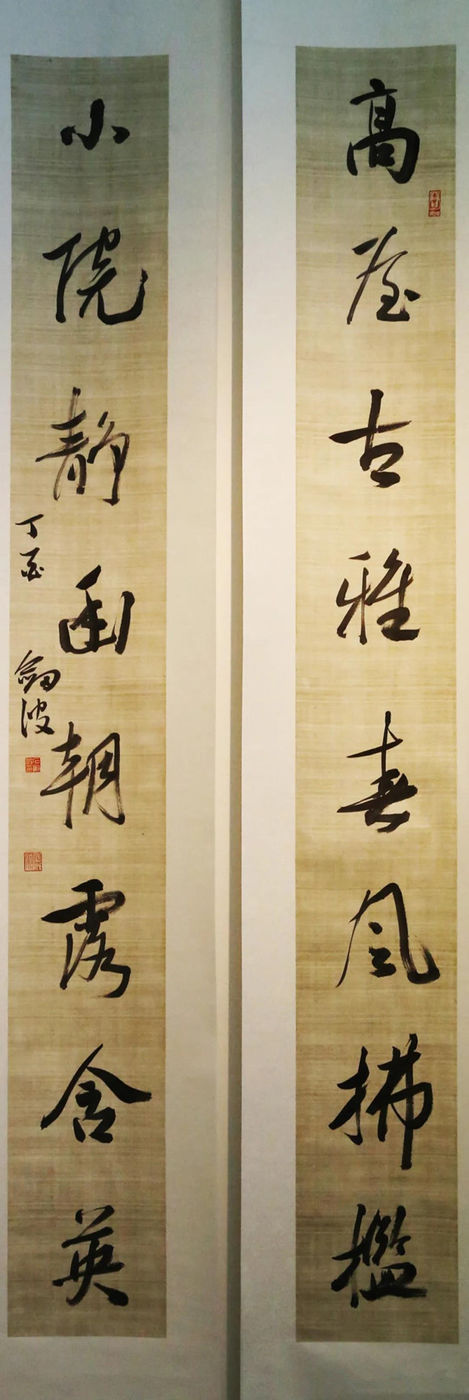 高屋古雅春風拂檻
小院静幽朝露含英
丁酉 劍波